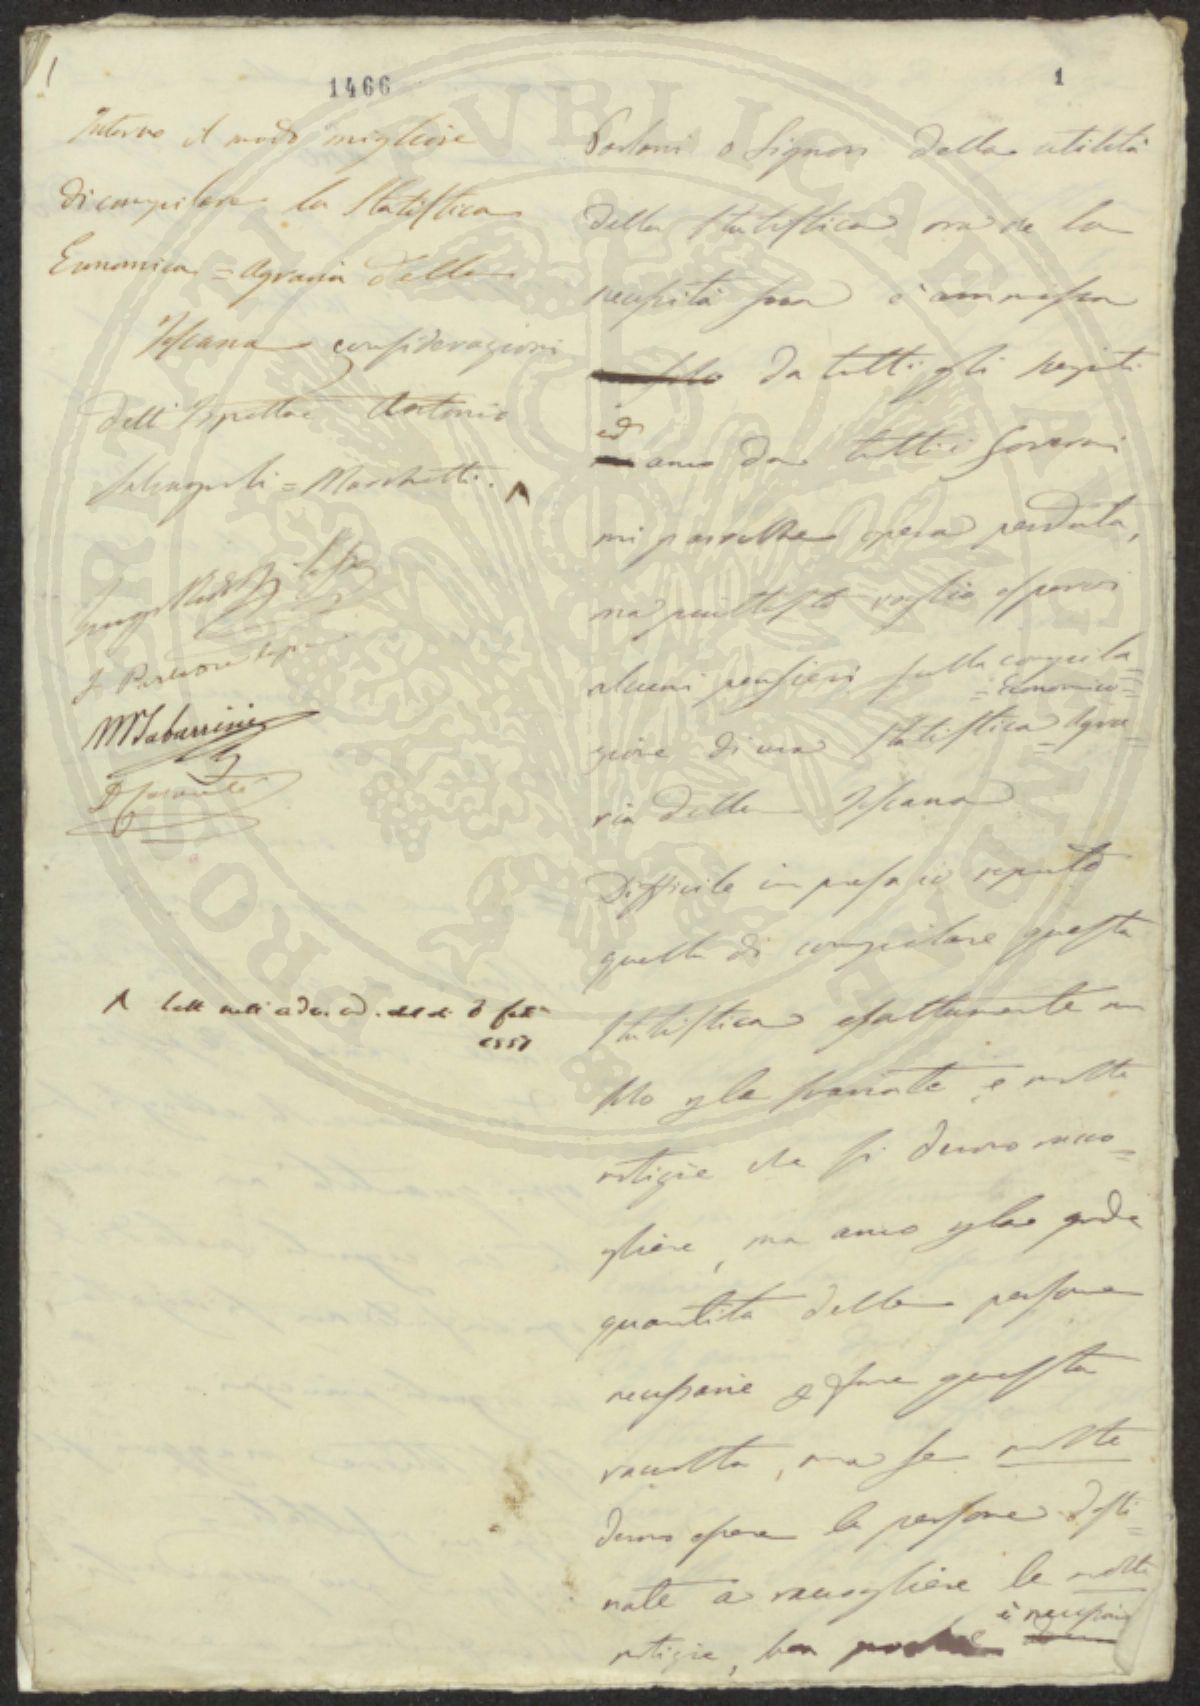 1466
1
Intorno il modo migliore
di compilare la Statistica
Economica = Agraria della
Toscana considerazioni
dell'Ispettor Antonio
Salvagnoli = Marchetti.
MTabarrini
Λ Lett nell adun. ord. del di
Parlarvi o Signori della utilità
della Statistica ora che la
necessità sua è ammessa
da tutti gli
ed
anco da tutti i Governi
mi parrebbe opera perduta,
ma piuttosto voglio esporvi
alcuni pensieri sulla compila=
=Economico=
zione di una Statistica Agra=
ria della Toscana
Difficile impresa io reputo
quella di compilare questa
Statistica esattamente non
solo p le svariate, e molte
notizie che si devono racco=
gliere, ma anco p la grande
quantità delle persone
necessarie p fare questa
raccolta, ma se molte
devono essere le persone desti=
nate a raccogliere le molte
è necessario
notizie, ben
PROPRIETAS REI PUBLICAE